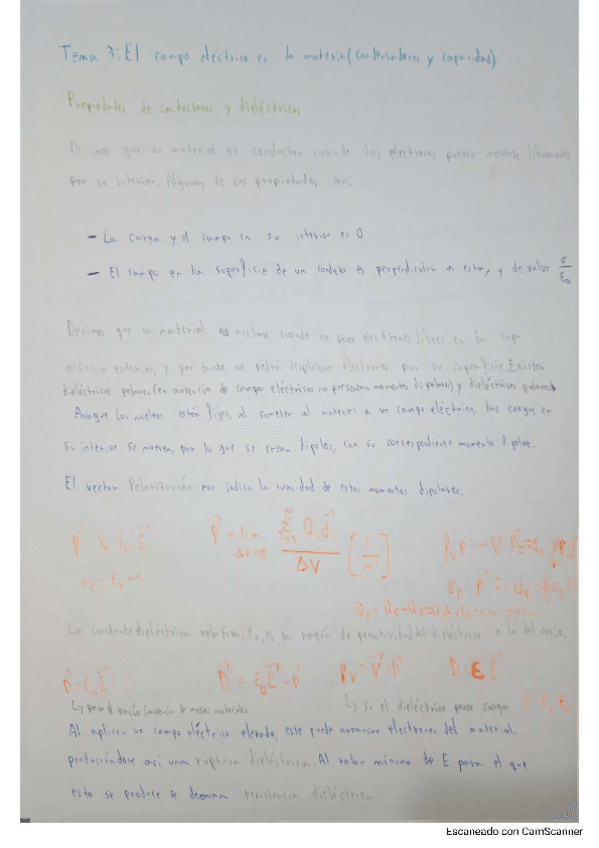 Tema 3: El campo eléctrico en la materia (condensadores y capacidad)
Propiedades de conductores y dieléctricos
Decimos que un material es conductor cuando los electrones pueden moverse libremente
por su interior. Algunas de sus propiedades son:
- La carga y el campo en su interior es 0
- El campo en la superficie de un conductor es perpendicular a esta, y de valor σ/ε₀
Decimos que un material es aislante cuando no posee electrones libres en la capa
exterior, y por tanto, no podrá desplazar electrones por su superficie. Existen
dieléctricos polares (en ausencia de campo eléctricos no presentan momentos dipolares) y dieléctricos polares
Aunque los nucleos están fijos, al someter al material a un campo eléctrico, las cargas en
su interior se mueven, por lo que se crean dipolos, con su correspondiente momento dipolar.
El vector Polarización nos indica la densidad de estos momentos dipolares.
La constante dieléctrica relativa, εᵣ, es la razón de permitividad del dieléctrico a la del vacío.
D = ε₀E D = ε₀E + P ρv = ∇·D D = εE
si el dieléctrico posee carga
Al aplicar un campo eléctrico elevado, este puede arrancar electrones del material,
produciéndose así una ruptura dieléctrica. Al valor mínimo de E para el que
esto se produce se denomina resistencia dieléctrica
Escaneado con CamScanner